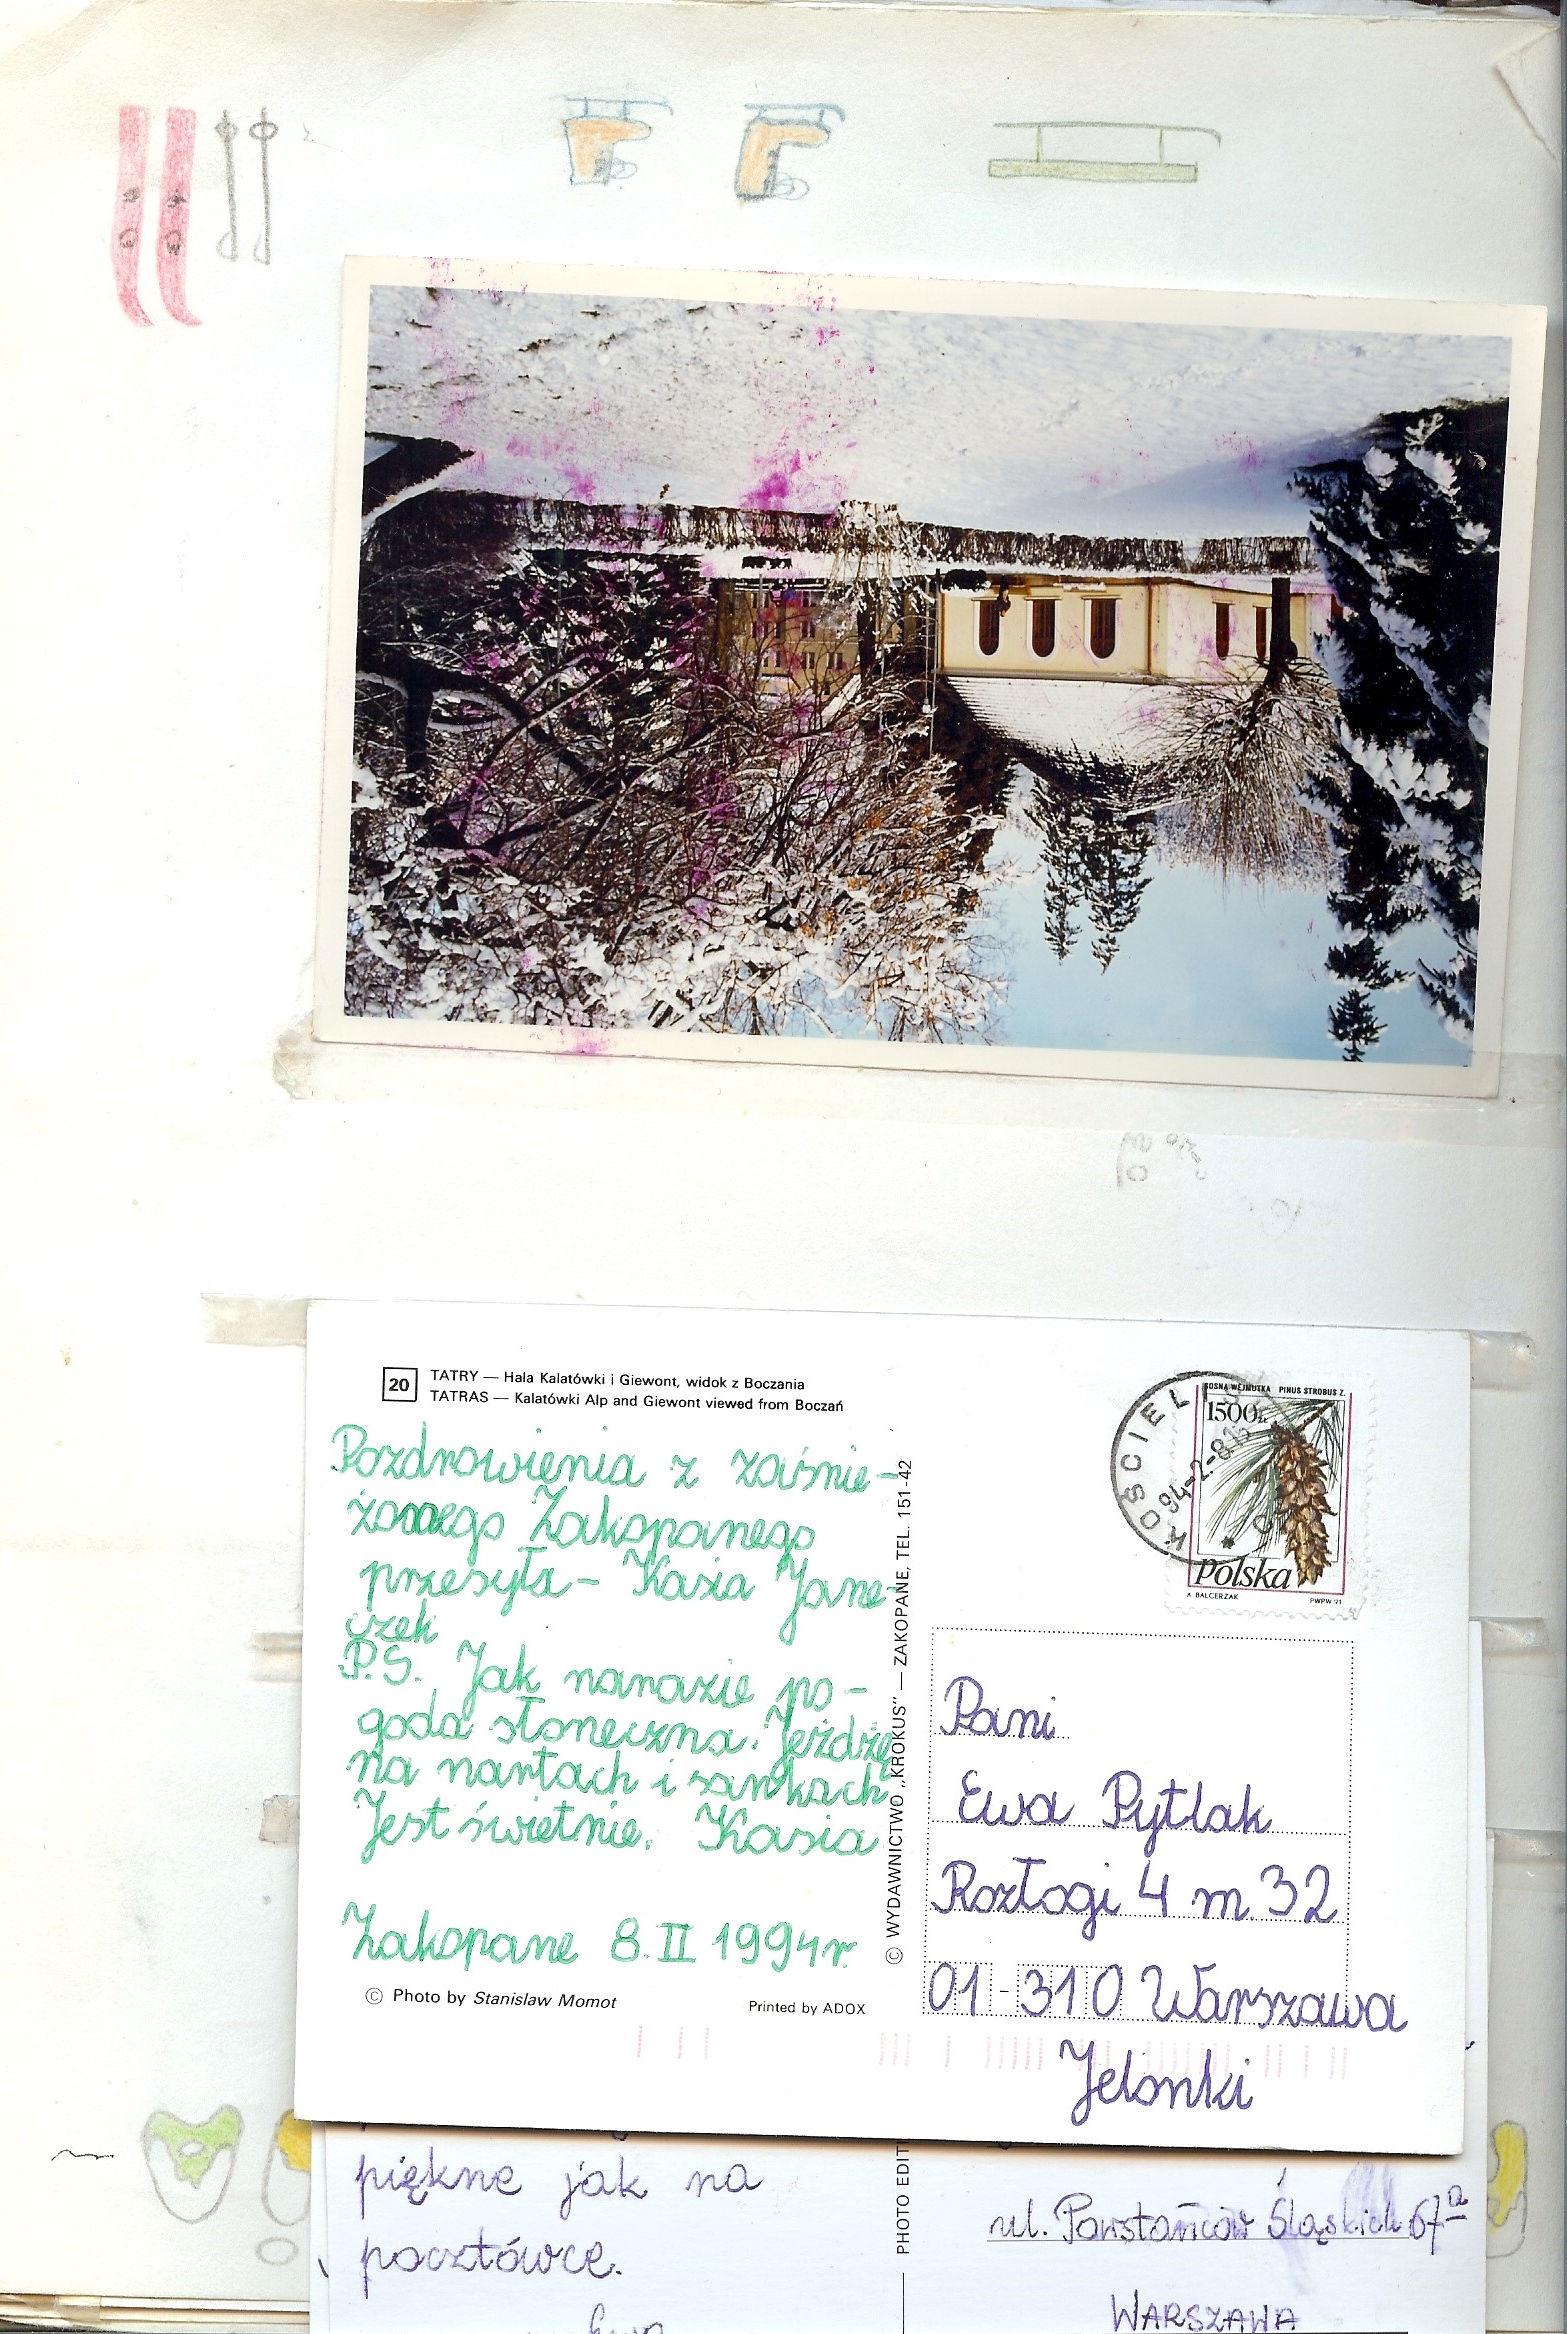 20
TATRY — Hala Kalatówki i Giewont, widok z Boczania
TATRAS — Kalatówki Alp and Giewont viewed from Boczań
Pozdrowienia z zaśnie-
żonego Zakopanego
przesyła - Kasia Jane-
czek
P.S. Jak narazie po-
goda słoneczna. Jeżdżę
na nartach i sankach
Jest świetnie. Kasia
Zakopane 8.II 1994r.
© Photo by Stanislaw Momot
Printed by ADOX
© WYDAWNICTWO „KROKUS" — ZAKOPANE, TEL. 151-42
KOŚCIELI
94-2-8
SOSNA WEJMUTKA PINUS STROBUS Z.
1500zł
Polska
A. BALCERZAK
PWPW 91
Pani
Ewa Pytlak
Rozłogi 4 m. 32
01-310 Warszawa
Jelonki
piękne jak na
pocztówce.
PHOTO EDIT
ul. Powstańców Śląskich 67a
WARSZAWA